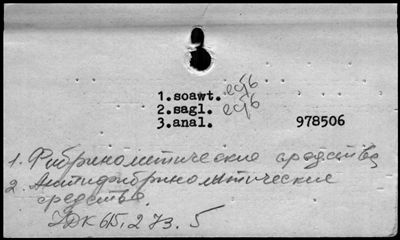 1. soawt. еф6
2. sagl. еф6
3. anal. 978506
1. Фибринолитические средства
2. Антифибринолитические
средства.
УДК 615.273.5